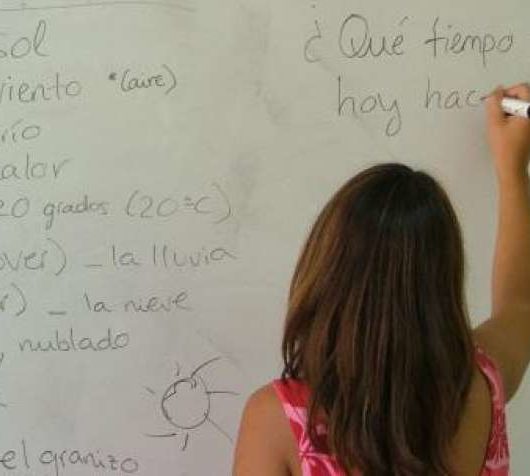 sol
viento *(aire)
río
alor
20 grados (20ºC)
over) - la lluvia
r) - la nieve
, nublado
el granizo
¿Qué tiempo
hoy hac